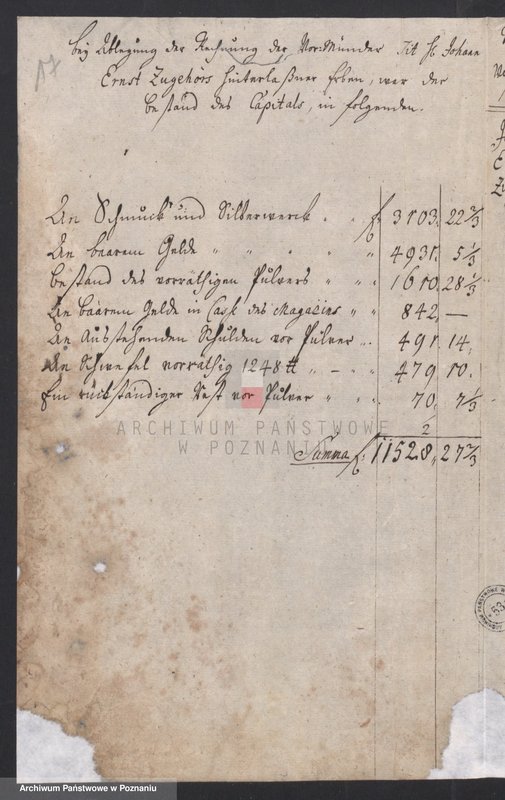 17
bey Ablegung der Rechnung der Vor-Münder Tit H. Johann
Ernst Zugehörs hinterlaßner Erben, war der
bestand des Capitals, in folgenden.
An Schmuck und Silberwerck " " f. 3103. 22 2/3
An baarem Gelde " " " " " 4931. 5 1/3
bestand des vorräthigen Pulvers " " " 1610. 28 1/3
An baarem Gelde in Cass des Magazins " " 842, —
An Ausstehenden Schulden vor Pulver " 491. 14,
An Schwefel vorräthig 1248 ℔ " — " " 479. 10.
Ein rückständiger Rest vor Pulver " " " 70, 7 1/3
2
Summa f. 11528, 27 2/3
ARCHIWUM PAŃSTWOWE
W POZNANIU
53
Archiwum Państwowe w Poznaniu